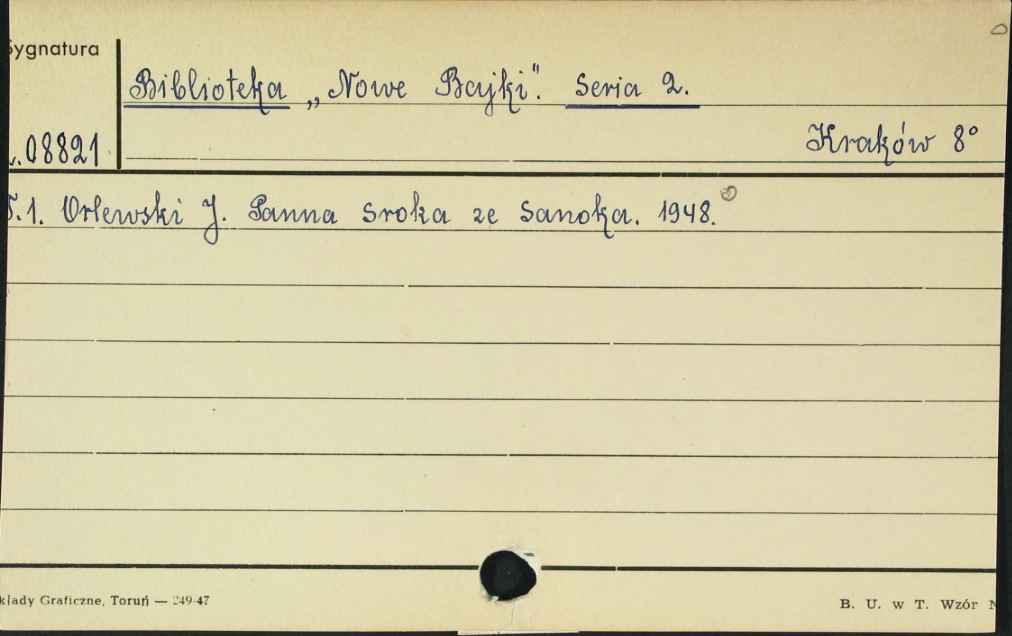 Sygnatura
Biblioteka „Nowe Bajki". Seria 2.
08821
Kraków 8°
T.1. Orłewski J. Panna Sroka ze Sanoka. 1948.
kłady Graficzne, Toruń — 249-47
B. U. w T. Wzór N